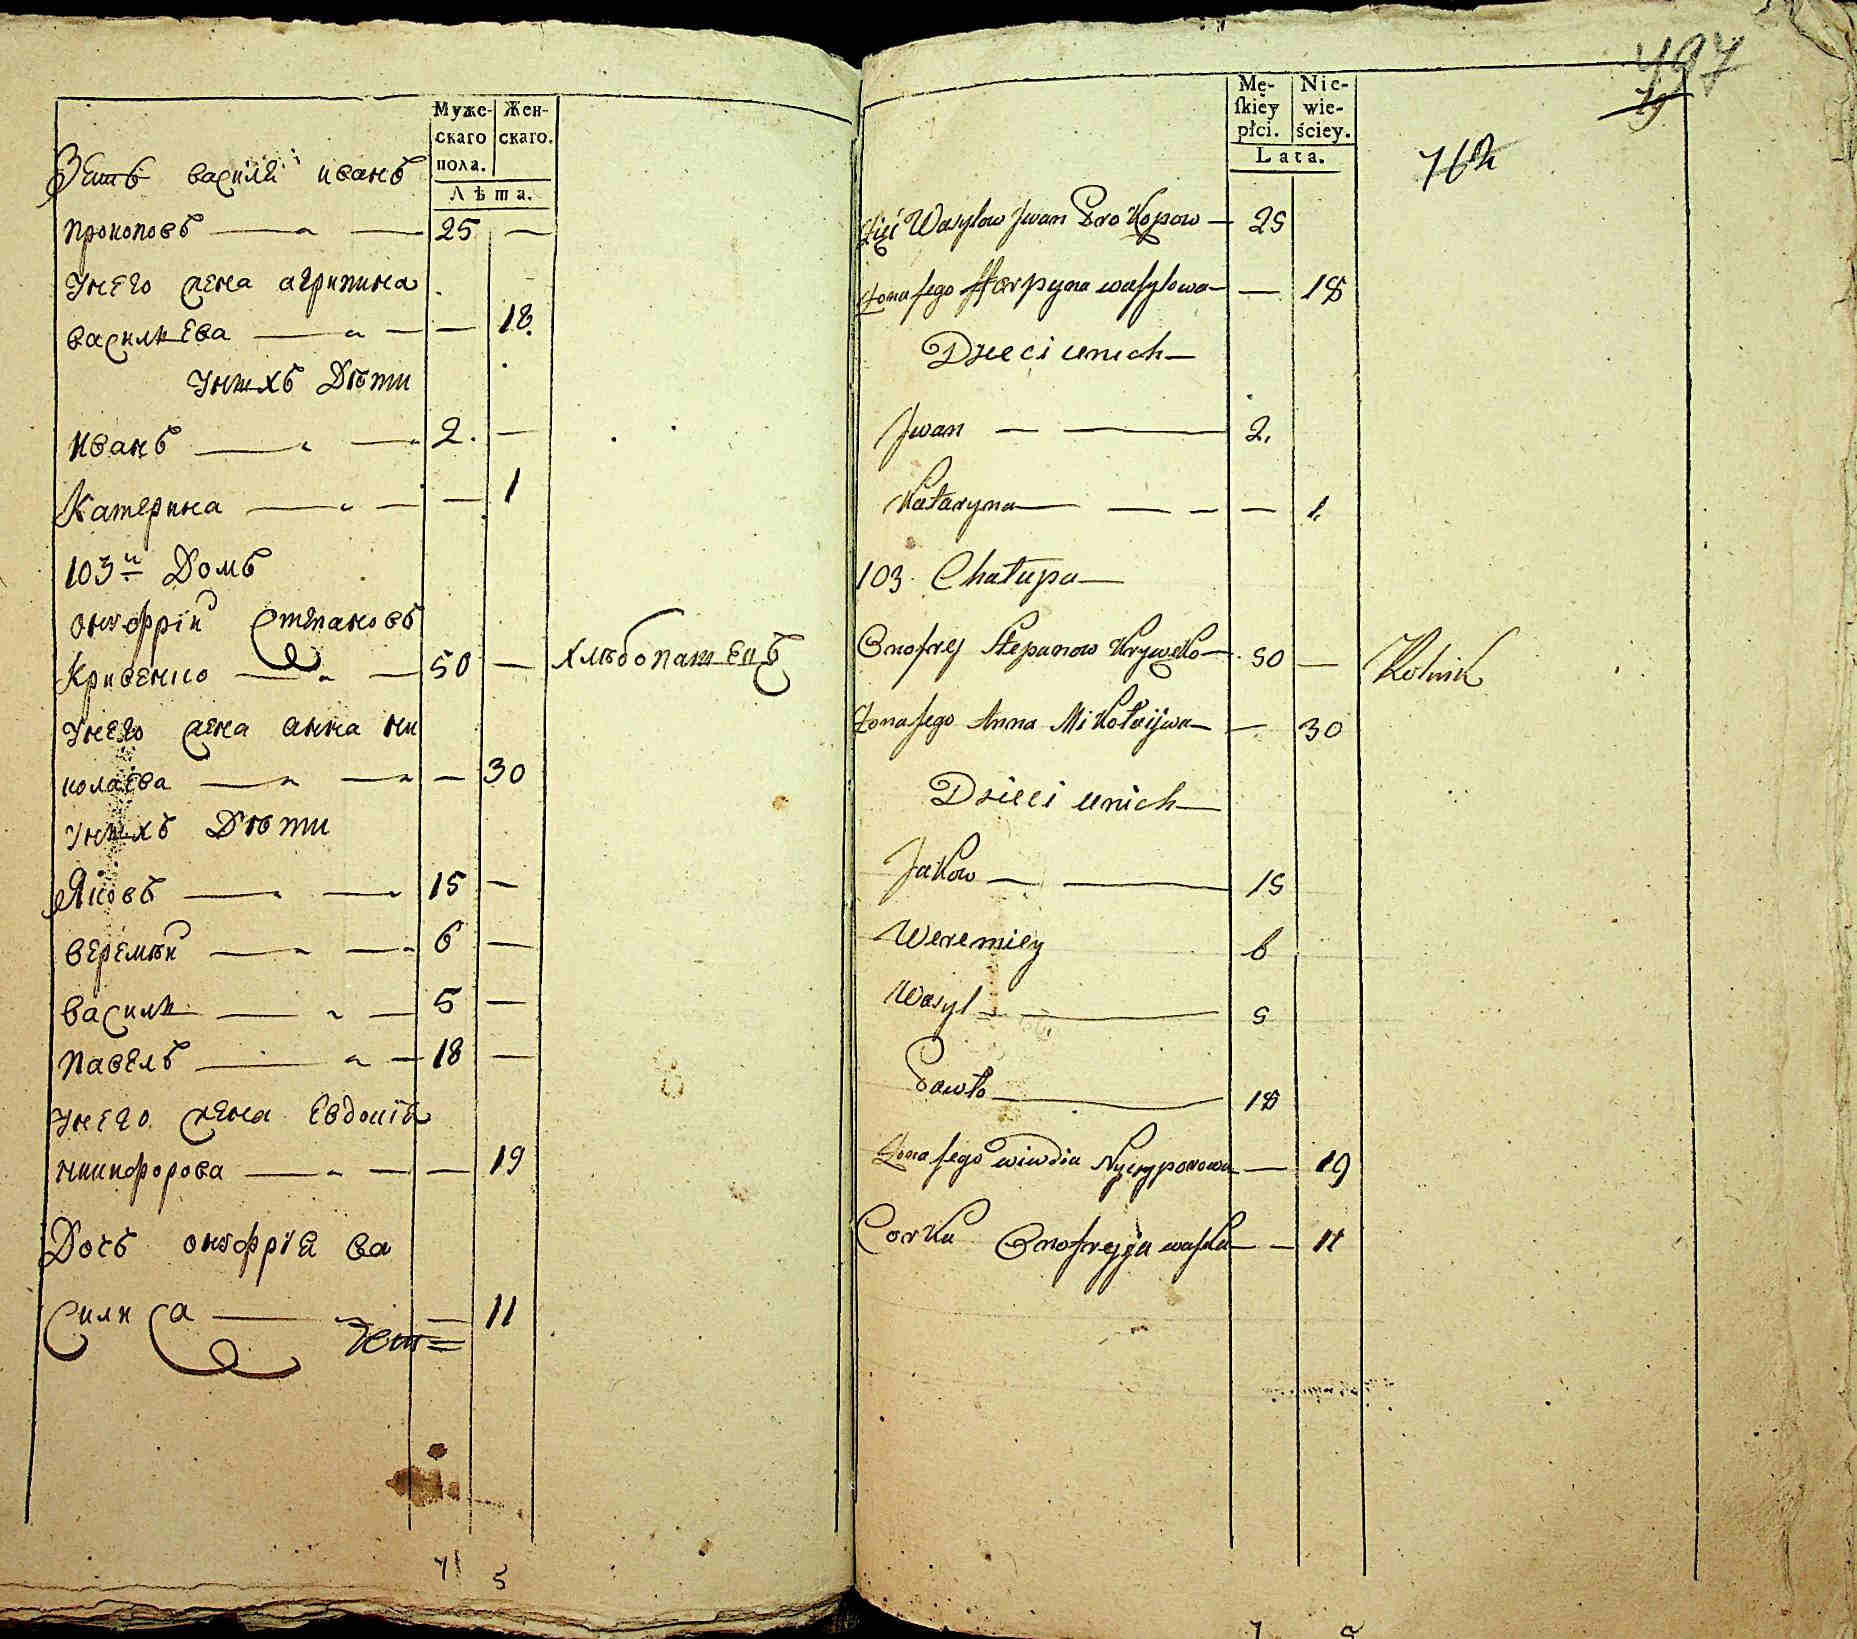 Муже- Жен-
скаго скаго.
пола.
Лѣта.
Зять василя иванъ
прокоповъ 25 —
Унего жена агрипина
василиева — 18.
Унихъ Дѣти
иванъ 2. —
Катерина — 1
103й Домъ
онофрій Степановъ
Кривенко 50 — хлѣбопашецъ
Унего жена анна ни
колаева — 30
Унихъ Дѣти
Яковъ 15 —
веремѣй 6 —
васили 5 —
павелъ 18 —
Унего жена Евдокія
никифорова — 19
Дочь онофрія ва
силиса — 11
7 5
497
Mę- Nie-
skiey wie-
płci. ściey.
Lata.
Zięć Wasylow Jwan Prokopow — 25
Żona jego Harpyna wasylowa — 18
Dzieci unich —
Jwan — 2.
Kataryna — 1.
103. Chałupa —
Onofrey Stepanow Kryweko — 50 — Rolnik
Żona jego Anna Mikołaijwa — 30
Dzieci unich —
Jakow — 15
Weremiey 6
Wasyl — 5
Pawło — 18
Żona jego wiwdia Nyczyporowa — 19
Corka Onofreyja waska — 11
7 5